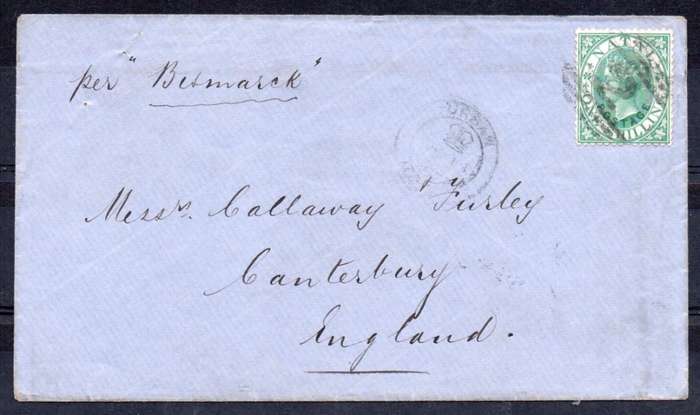 per "Bismarck"
NATAL
POSTAGE
ONE SHILLING
DURBAN
Messrs. Callaway & Furley
Canterbury
England.